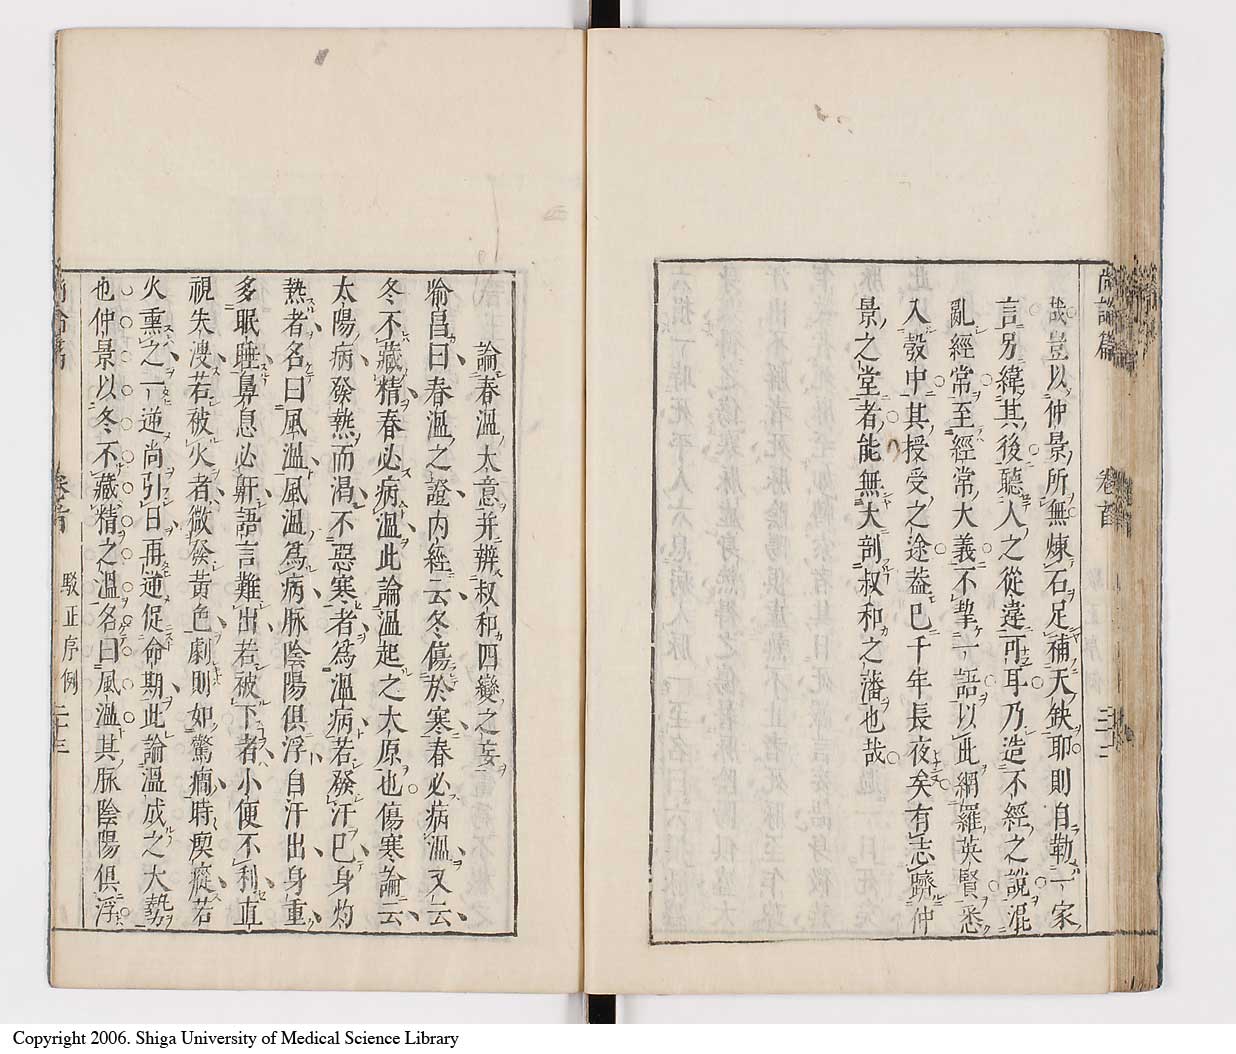 尚論篇 卷首
哉豈以仲景所無煉石足補天缺耶則自勒一家
言另緯其後聽人之從違可耳乃造不經之說混
亂經常至經常大義不挈一語以此網羅英賢悉
入彀中其授受之途葢已千年長夜矣有志躋仲
景之堂者能無大剖叔和之藩也哉
論春溫大意并辨叔和四變之妄
喻昌曰春溫之證內經云冬傷於寒春必病溫又云
冬不藏精春必病溫此論溫起之大原也傷寒論云
太陽病發熱而渴不惡寒者為溫病若發汗已身灼
熱者名曰風溫風溫為病脉陰陽俱浮自汗出身重
多眠睡鼻息必鼾語言難出若被下者小便不利直
視失溲若被火者微發黃色劇則如驚癇時瘈瘲若
火熏之一逆尚引日再逆促命期此論溫成之大勢
也仲景以冬不藏精之溫名曰風溫其脉陰陽俱浮
駁正序例 二十三
Copyright 2006. Shiga University of Medical Science Library